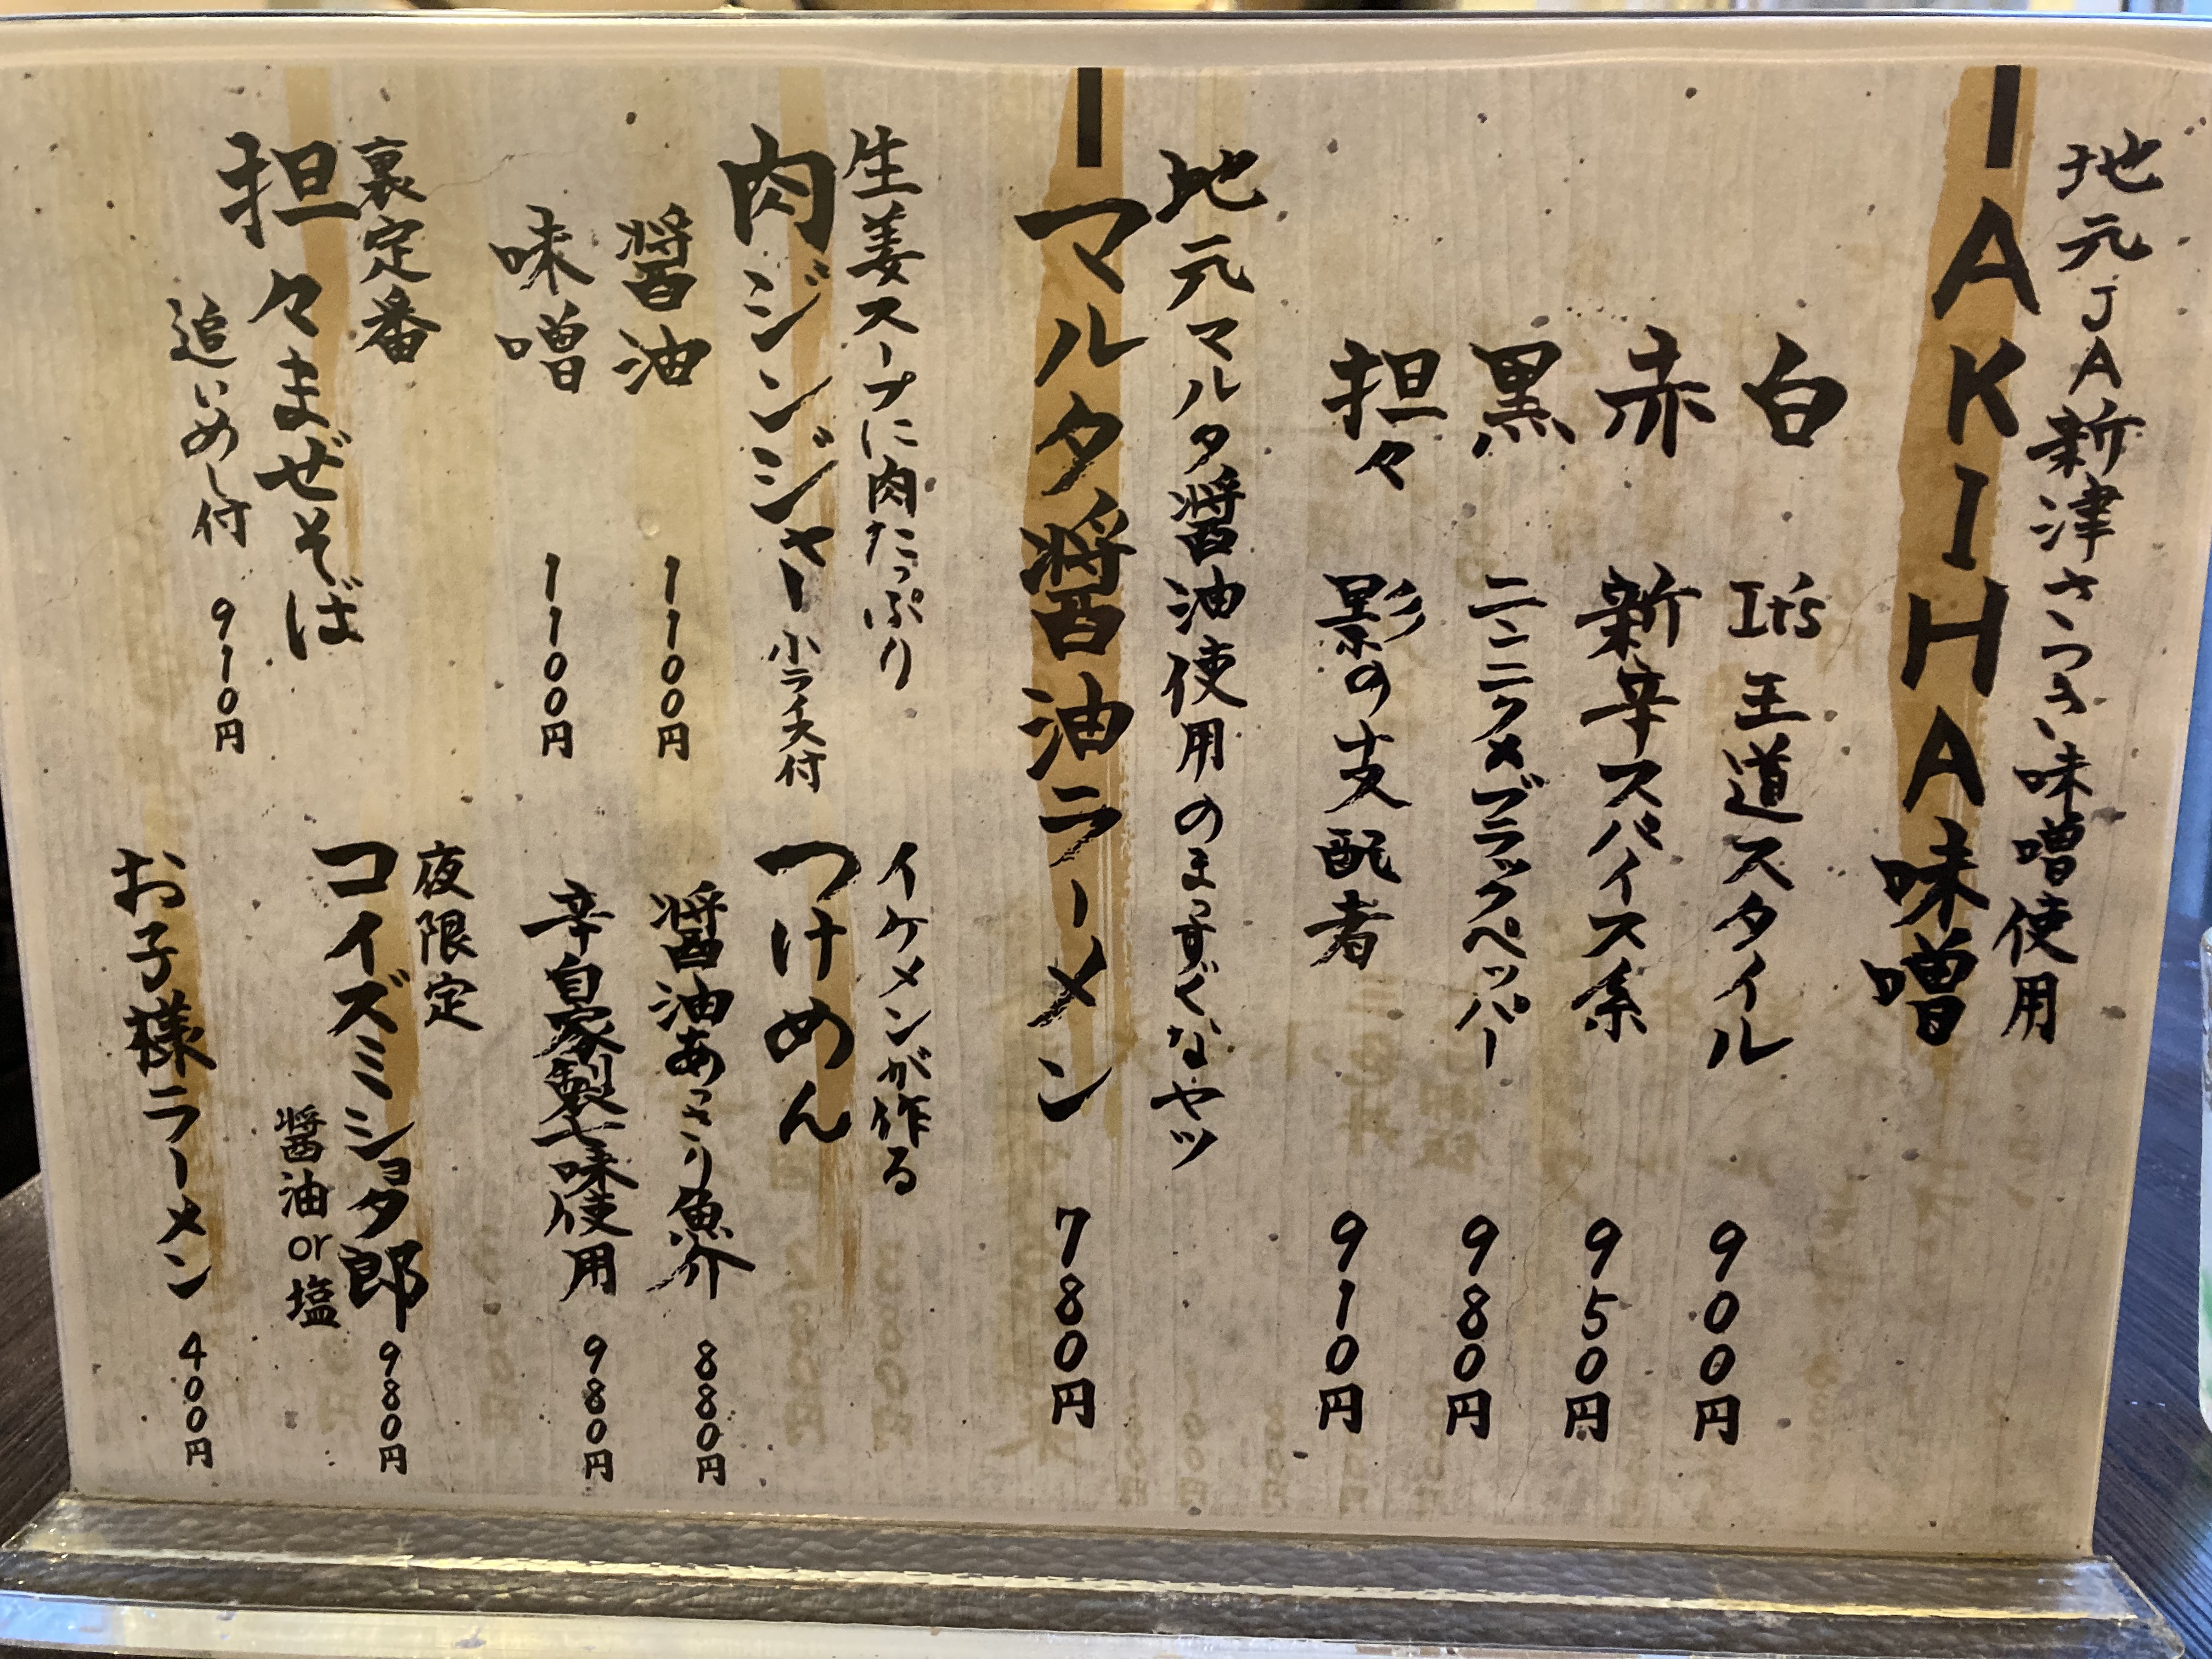 地元JA新津さつき味噌使用
AKIHA味噌
白 It's 王道スタイル 900円
赤 新辛スパイス系 950円
黒 ニンニク×ブラックペッパー 980円
担々 影の支配者 910円
地元マルタ醤油使用のまっすぐなヤツ
マルタ醤油ラーメン 780円
生姜スープに肉たっぷり
肉ジンジャー 小ライス付
醤油 1100円
味噌 1100円
イケメンが作る
つけめん
醤油あっさり魚介 880円
辛自家製七味使用 980円
裏定番
担々まぜそば
追いめし付 910円
夜限定
コイズミショタ郎 980円
醤油or塩
お子様ラーメン 400円